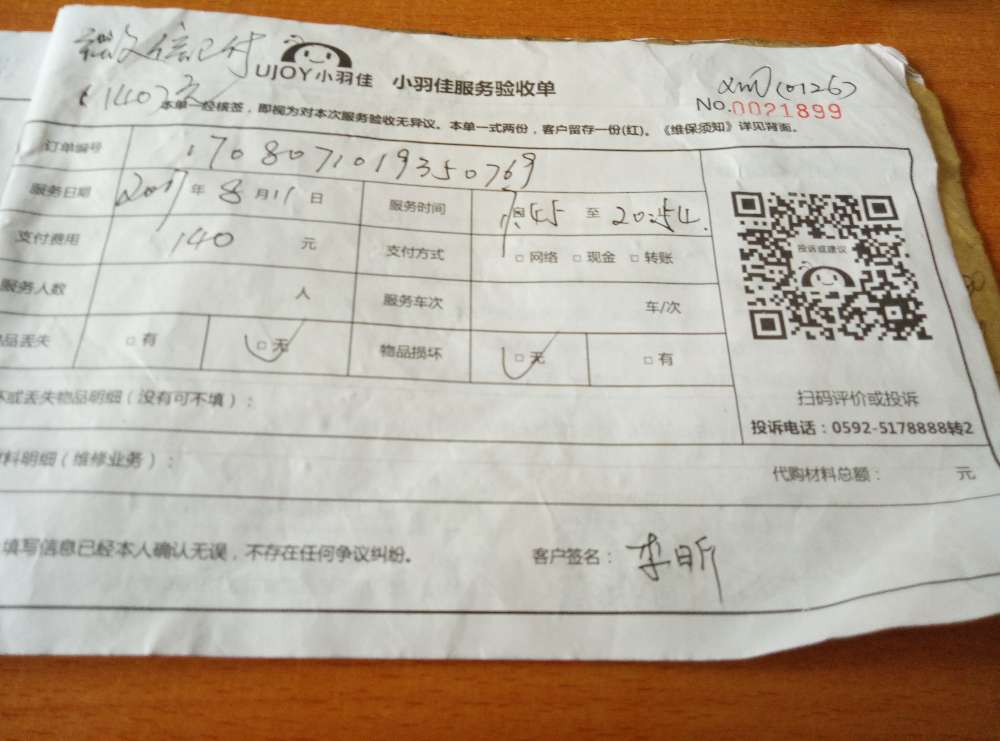 微信已付
(140元)
UJOY小羽佳 小羽佳服务验收单
No.0021899
本单一经核签，即视为对本次服务验收无异议。本单一式两份，客户留存一份(红)。《维保须知》详见背面。
订单编号 1708071019350769
服务日期 2017年8月11日 服务时间 :45 至 20:54
支付费用 140 元 支付方式 □网络 □现金 □转账
服务人数 人 服务车次 车/次
品丢失 □有 □无 物品损坏 □无 □有
投诉或建议
扫码评价或投诉
投诉电话：0592-5178888转2
坏或丢失物品明细（没有可不填）：
材料明细（维修业务）： 代购材料总额： 元
填写信息已经本人确认无误，不存在任何争议纠纷。 客户签名：李昕